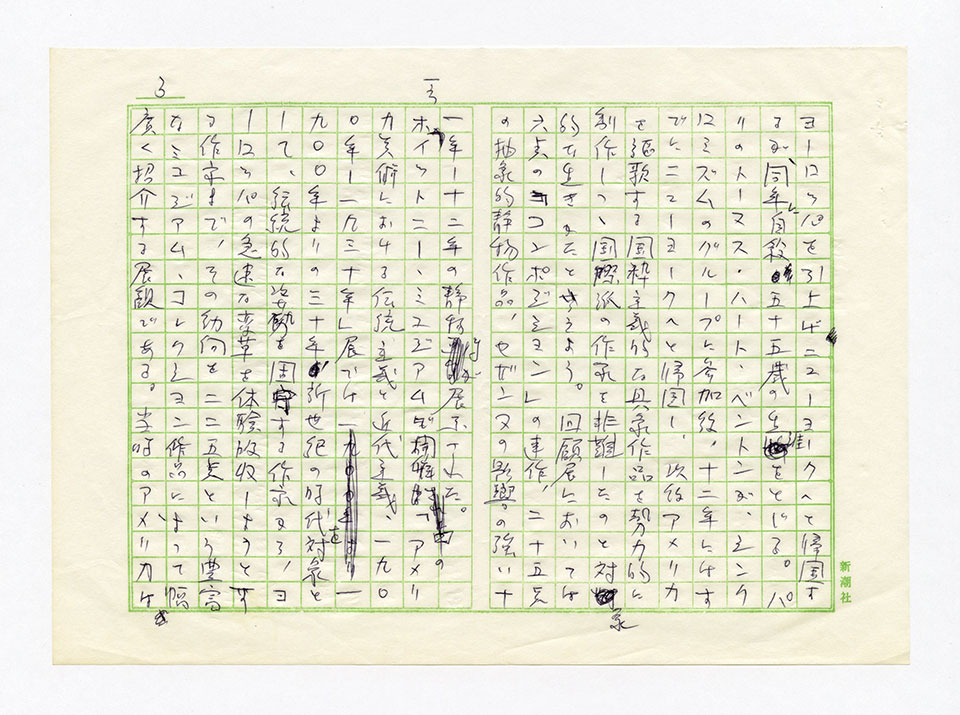 ヨーロッパを引上げニューヨークへと帰国す
るが、同年自殺、五十五歳の生涯をとじる。パ
リのトーマス・ハート・ベントンが、シンク
ロミズムのグループに参加後、十二年にはす
でにニューヨークへと帰国し、以後アメリカ
を謳歌する国粋主義的な具象作品を勢力的に
制作しつつ、国際派の作家を非難したのと対象
的な生き方だと言えよう。回顧展においては
六点の「コンポジション」の連作、二十五点
の抽象的静物作品、セザンヌの影響の強い十
一年―十二年の静物が展示された。
ホイットニー・ミュゼアムで開催中の「アメリ
カ美術における伝統主義と近代主義、一九〇
〇年―一九三十年」展では、一
九〇〇年よりの三十年、新世紀の時代を対象と
して、伝統的な姿勢を固守する作家より、ヨ
ーロッパの急速な変革を体験吸収しようとす
る作家まで、その動向を二二五点という豊富
なミュゼアム・コレクション作品によって幅
広く紹介する展観である。当時のアメリカは
3
新潮社